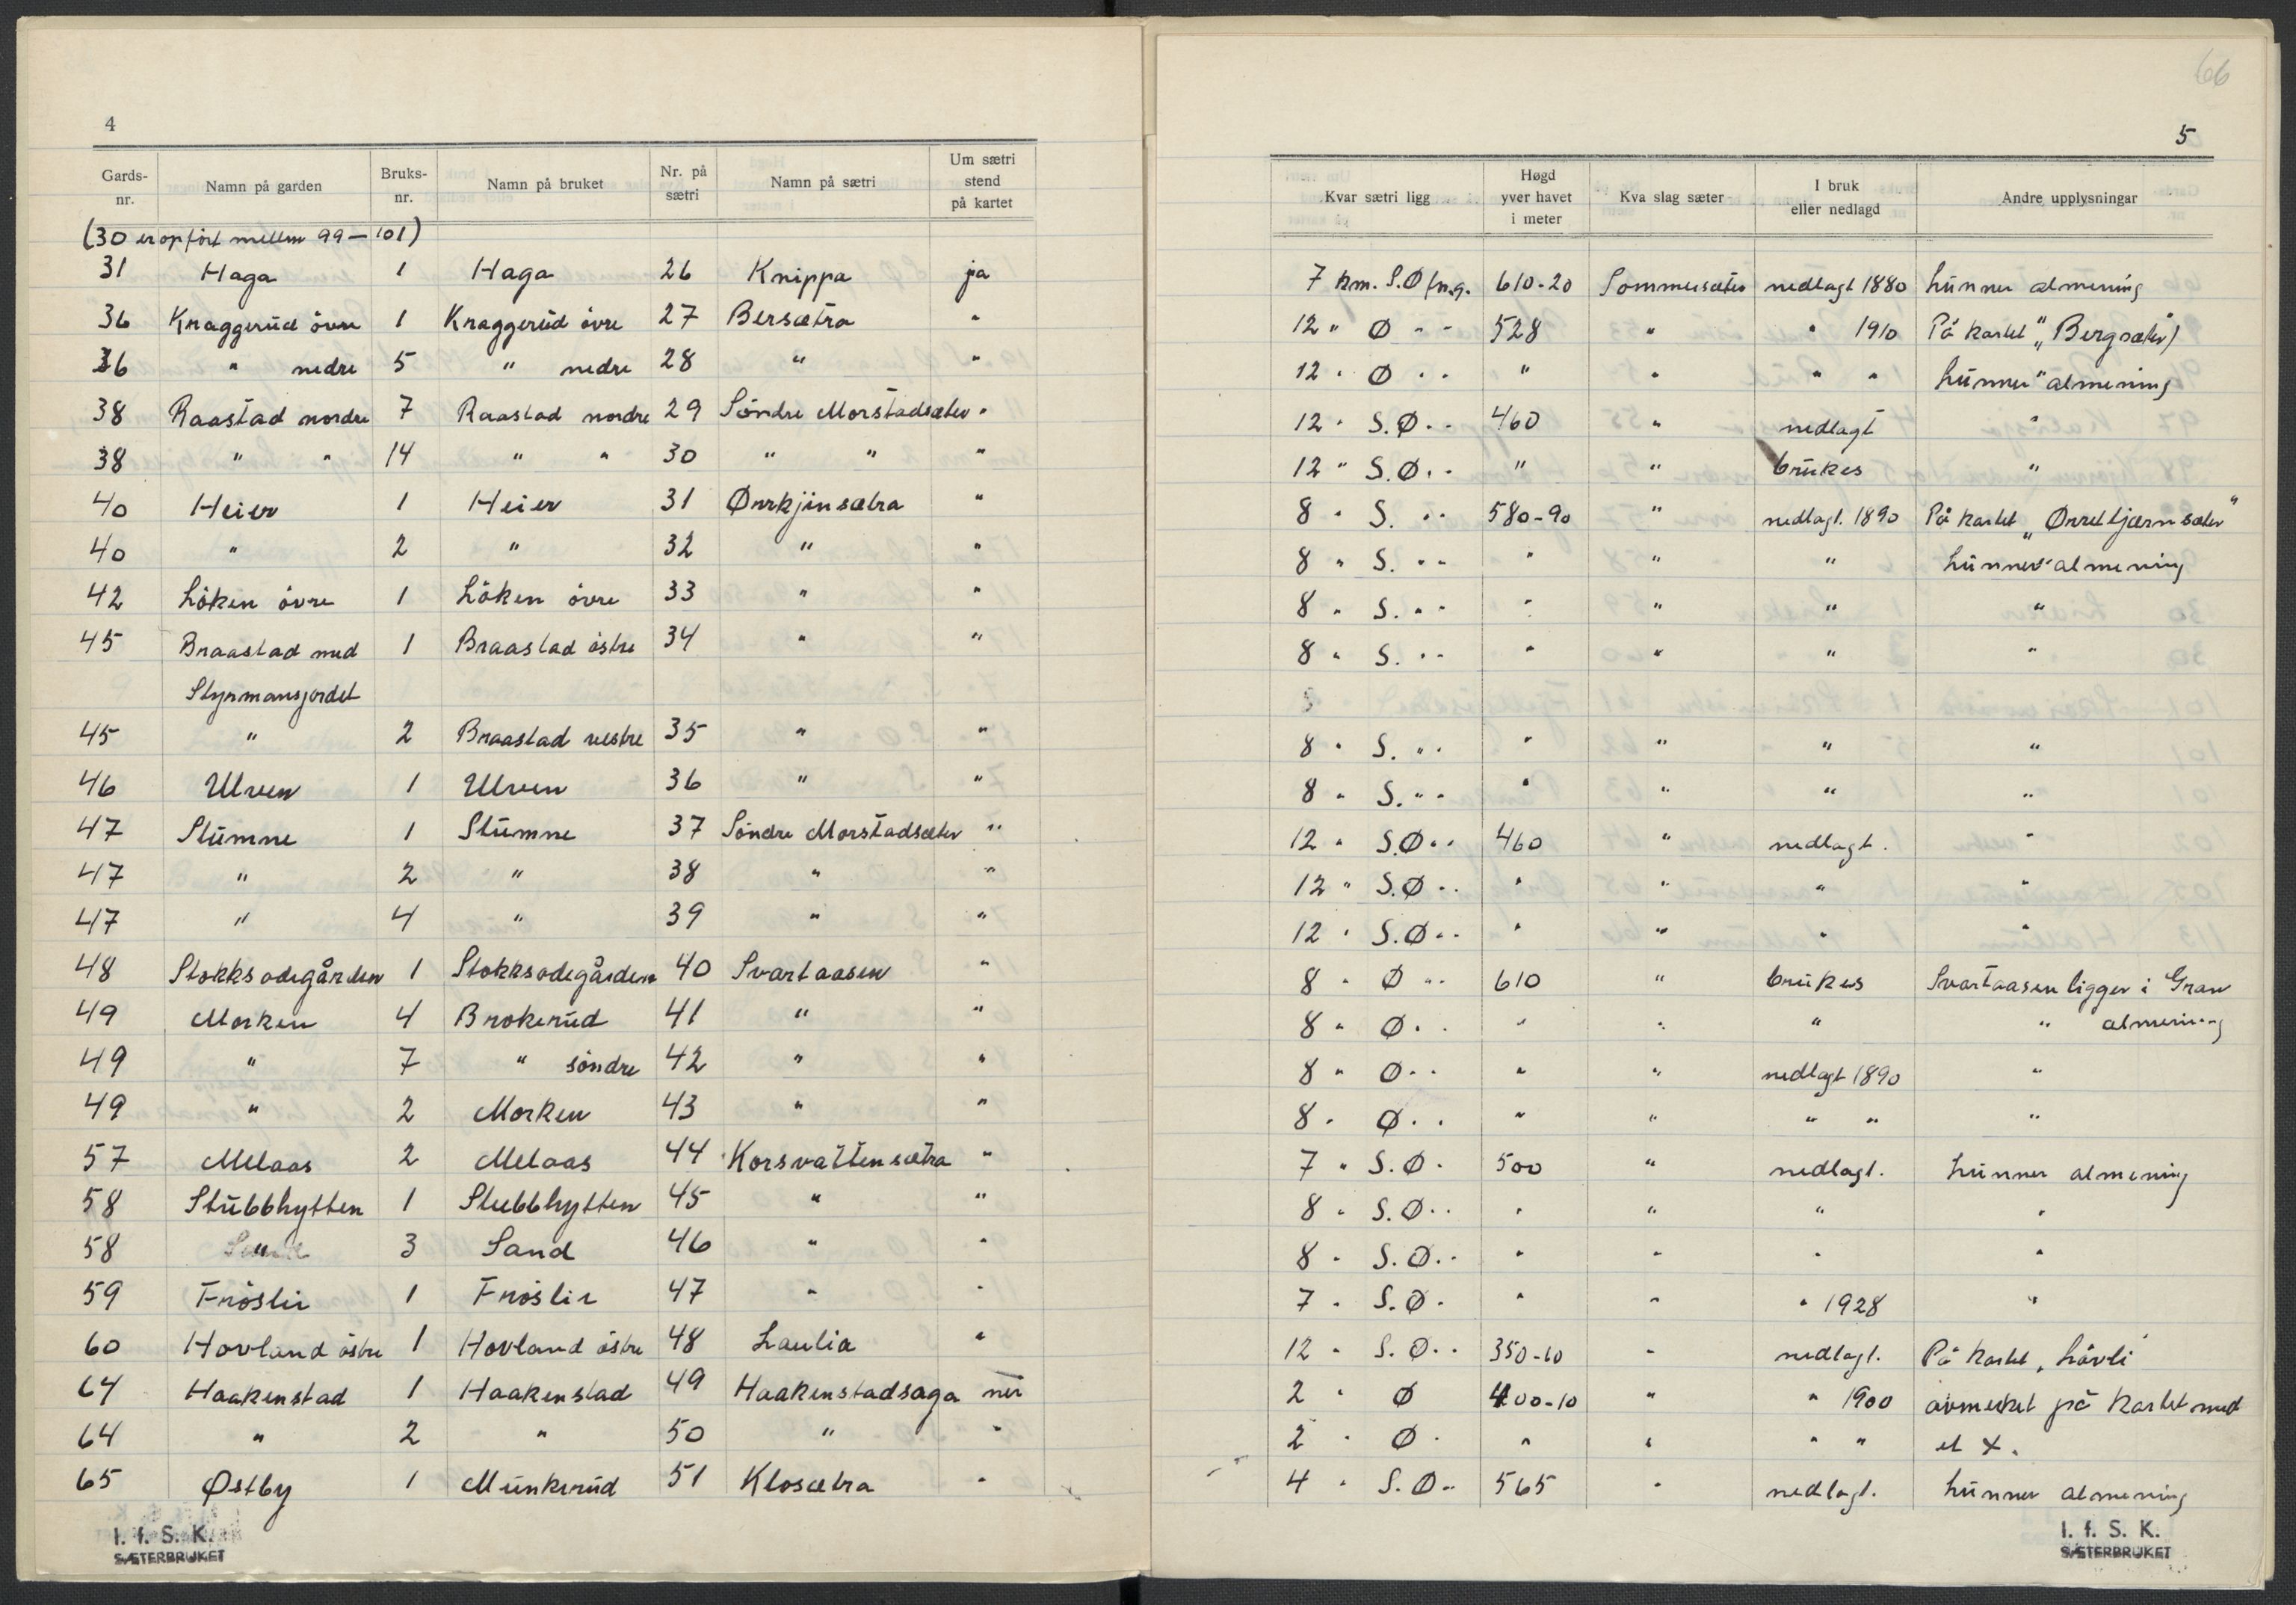 4
Gards-nr. Namn på garden Bruks-nr. Namn på bruket Nr. på sætri Namn på sætri Um sætri stend på kartet
(30 er opført mellem 99 — 101)
31 Haga 1 Haga 26 Knippa ja
36 Knaggerud övre 1 Knaggerud övre 27 Bersætra "
36 " nedre 5 " nedre 28 " "
38 Raastad nordre 7 Raastad nordre 29 Söndre Morstadsæter "
38 " " 14 " " 30 " " "
40 Heier 1 Heier 31 Ørrkjinsætra "
40 " 2 " 32 " "
42 Löken övre 1 Löken övre 33 " "
45 Braastad med 1 Braastad östre 34 " "
Styrmansjordet
45 " 2 Braastad vestre 35 " "
46 Ulven 1 Ulven 36 " "
47 Stumne 1 Stumne 37 Söndre Morstadsæter "
47 " 2 " 38 " "
47 " 4 " 39 " "
48 Stokksødegården 1 Stokksødegården 40 Svartaasen "
49 Morken 4 Brokerud 41 " "
49 " 7 " söndre 42 " "
49 " 2 Morken 43 " "
57 Melaas 2 Melaas 44 Korsvattensætra "
58 Stubbhytten 1 Stubbhytten 45 " "
58 " 3 Sand 46 " "
59 Fröslie 1 Fröslie 47 " "
60 Hovland östre 1 Hovland östre 48 Laulia "
64 Haakenstad 1 Haakenstad 49 Haakenstadsaga nei
64 " 2 " 50 " "
65 Østby 1 Munkerud 51 Klosætra "
I. f. S. K.
SÆTERBRUKET
66
5
Kvar sætri ligg Høgd yver havet i meter Kva slag sæter I bruk eller nedlagd Andre upplysningar
7 km. S.Ø f.n.g. 610-20 Sommersæter nedlagt 1880 Lunner almening
12 " Ø " " 528 " " 1910 På kartet „Bergsæter)
12 " Ø " " " " " " Lunner almening
12 " S.Ø " " 460 " nedlagt "
12 " S.Ø " " " " brukes "
8 " S. " " 580-90 " nedlagt. 1890 På kartet „Ørretkjærnsæter"
8 " S. " " " " " Lunner almening
8 " S. " " " " " "
8 " S. " " " " " "
8 " S. " " " " " "
8 " S. " " " " " "
12 " S.Ø " " 460 " nedlagt. "
12 " S.Ø " " " " " "
12 " S.Ø " " " " " "
8 " Ø " " 610 " brukes Svartaasen ligger i Gran
8 " Ø " " " " " " almening
8 " Ø " " " " nedlagt 1890 "
8 " Ø " " " " " " "
7 " S.Ø " 500 " nedlagt. Lunner almening
8 " S.Ø " " " " " "
8 " S.Ø " " " " " "
7 " S.Ø " " " " 1928 "
12 " S.Ø " " 350-60 " nedlagt. På kartet „Lövli"
2 " Ø 400-10 " " 1900 avmerket på kartet med
2 " Ø " " " " " et x.
4 " S.Ø " 565 " nedlagt. Lunner almening
I. f. S. K.
SÆTERBRUKET